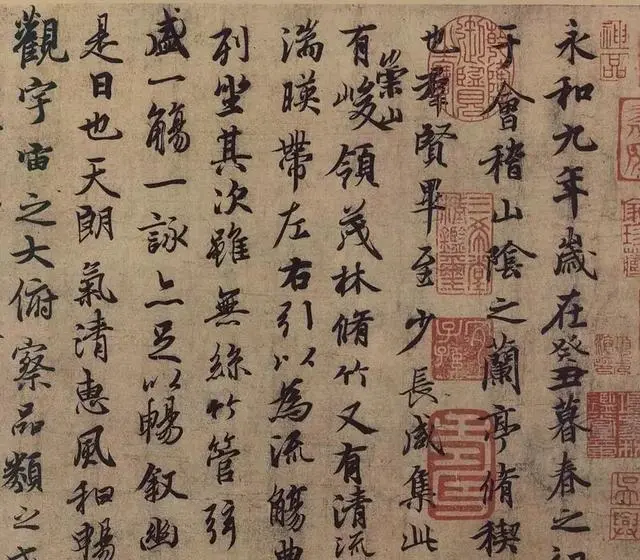 永和九年歲在癸丑暮春之初
于會稽山陰之蘭亭脩稧
也羣賢畢至少長咸集此
有崇山峻領茂林脩竹又有清流
湍暎帶左右引以為流觴曲
列坐其次雖無絲竹管弦
盛一觴一詠亦足以暢敘幽
是日也天朗氣清惠風和暢
觀宇宙之大俯察品類之
神品